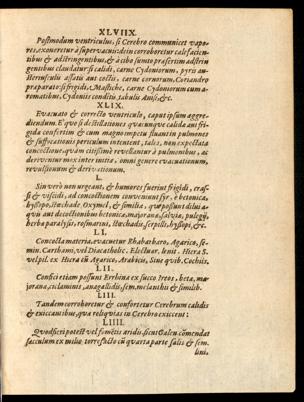 XLVIIX.
Postmodum ventriculus, si Cerebro communicet vapo-
res, exoneretur à supervacuis: dein corroboretur calefacien-
tibus & adstringentibus, & à cibo sumto præsertim adstrin
gentibus claudatur si calidi, carne Cydoniorum, pyris au
assatis aut coctis, carne cornorum, Coriandro
præparato: si frigidi, Mastiche, carne Cydoniorum cum a-
romatibus, Cydoniis conditis, tabulis &c.
XLIX.
Evacuato & correcto ventriculo, caput ipsum aggre-
diendum. E quo si destillationes quacunque calida aut fri
gida confertim & cum magno impetu fluant in pulmones
& suffocationis periculum intentent, tales, non expectata
concoctione, quàm citissimè revellantur à pulmonibus, ac
deriventur mox inter initia, omni genere evacuationum,
revulsionum & derivationum.
L.
Sin verò non urgeant, & humores fuerint frigidi, cras-
si & viscidi, ad concoctionem conveniunt syr. è betonica,
hyssopo, Stæchade Oxymel, & similia, quæ possunt dilui a-
quis aut decoctionibus betonicæ, majoranæ, salviæ, pulegij,
herbæ paralysis, rosmarini, Stæchadis, serpilli, hyssopi, &c.
LI.
Concocta materia, evacuetur Rhabarbaro, Agarico, se-
min. Carthami, vel Diacatholic. Elect. lenit. Hiera S.
vel pil. ex Hiera cū Agarico, Arabicis, Sine quib. Cochiis.
LII.
Confici etiam possunt Errhina ex succo Ireos, betæ, ma-
joranæ, ciclaminis, anagallidis, sem. melanthii & similib.
LIII.
Tandem corroboretur & confortetur Cerebrum calidis
& exiccantibus, quæ reliquias in Cerebro exiccent:
LIIII.
Quod fieri potest vel fomētis aridis, sicut Galen. cōmendat
sacculum ex milio torrefacto cū quarta parte salis & sem.
lini,